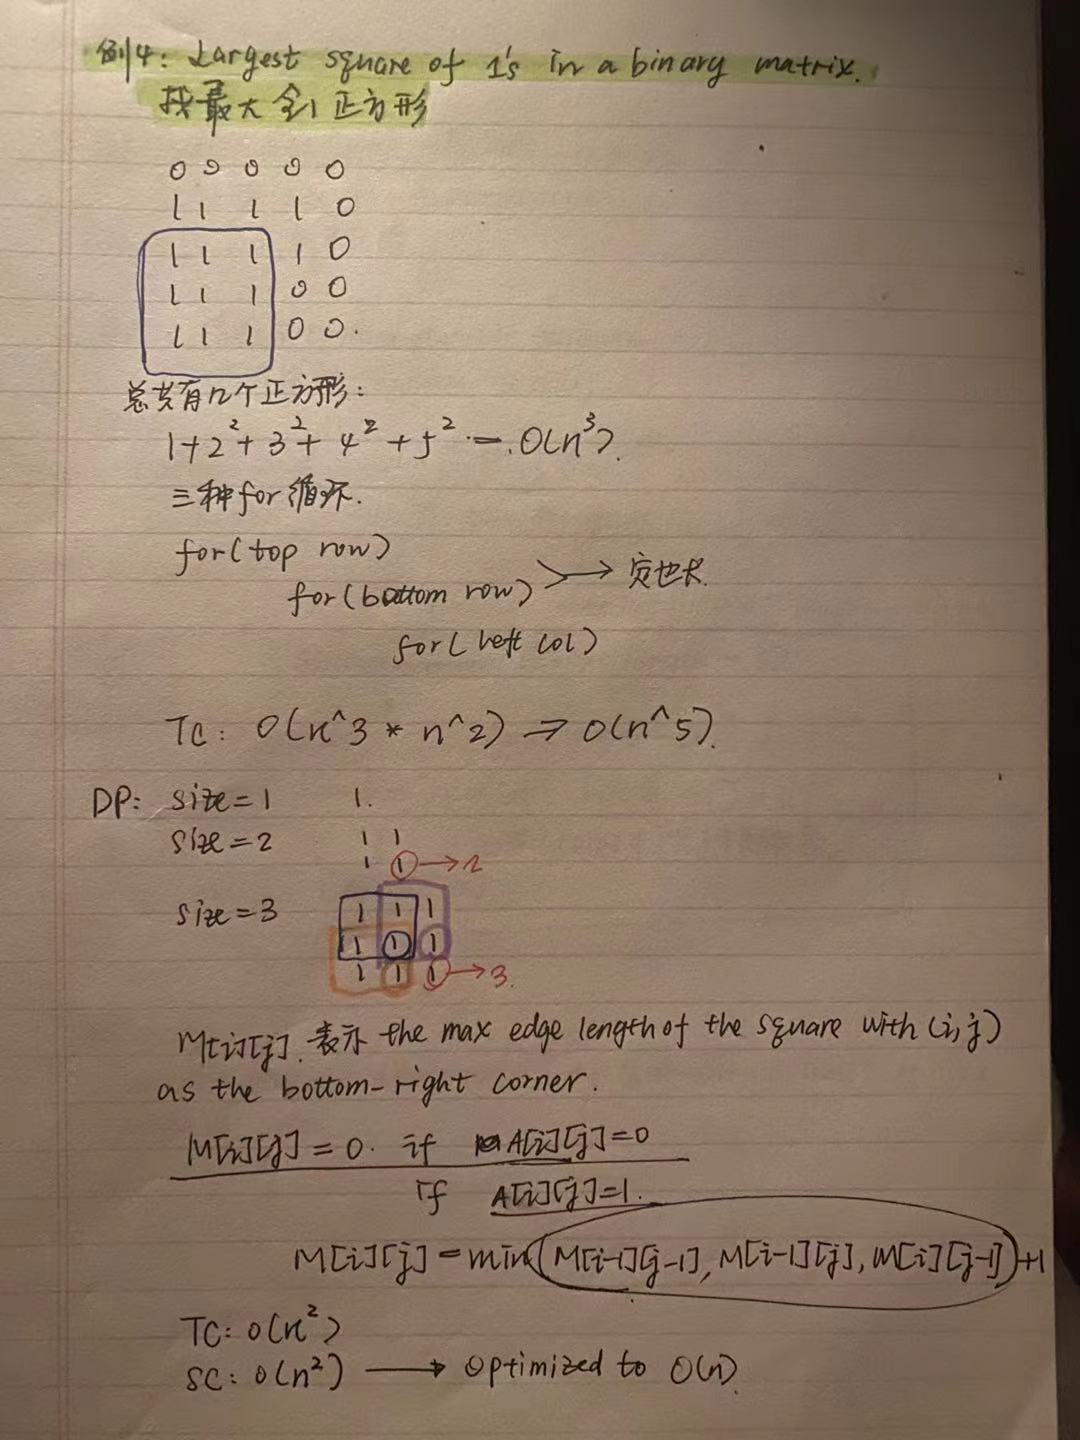 例4: Largest square of 1's in a binary matrix.
找最大全1正方形
0 0 0 0 0
1 1 1 1 0
1 1 1 1 0
1 1 1 0 0
1 1 1 0 0.
总共有几个正方形:
1+2²+3²+4²+5² ·— O(n³).
三种for循环.
for(top row)
for(bottom row) → 定边长.
for(left col)
TC: O(n^3 * n^2) → O(n^5).
DP: size=1 1.
size=2 1 1
1 1 → 2
size=3 1 1 1
1 1 1
1 1 1 → 3.
M[i][j]. 表示 the max edge length of the square with (i,j)
as the bottom-right corner.
M[i][j] = 0. if A[i][j]=0
if A[i][j]=1.
M[i][j] = min(M[i-1][j-1], M[i-1][j], M[i][j-1])+1
TC: O(n²)
SC: O(n²) → optimized to O(n).